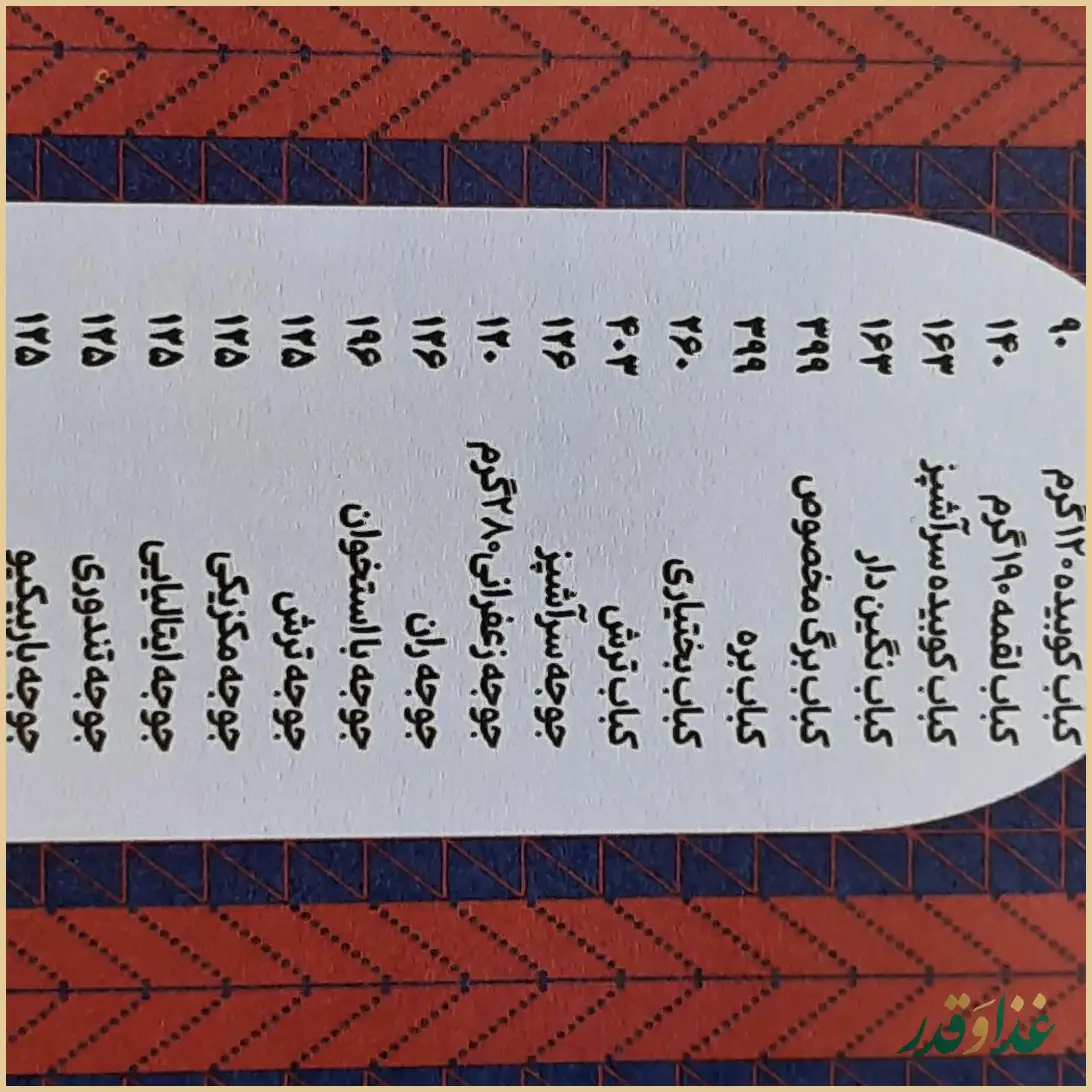 کباب کوبیده ۱۲۰گرم ۹۰
کباب لقمه ۱۹۰گرم ۱۴۰
کباب کوبیده سرآشپز ۱۶۳
کباب نگین دار ۱۶۳
کباب برگ مخصوص ۳۹۹
کباب بره ۳۹۹
کباب بختیاری ۲۶۰
کباب ترش ۴۰۳
جوجه سرآشپز ۱۲۶
جوجه زعفرانی۲۸۰گرم ۱۲۰
جوجه ران ۱۲۶
جوجه با استخوان ۱۹۶
جوجه ترش ۱۲۵
جوجه مکزیکی ۱۲۵
جوجه ایتالیایی ۱۲۵
جوجه تندوری ۱۲۵
جوجه باربیکیو ۱۲۵
غذا و قدر